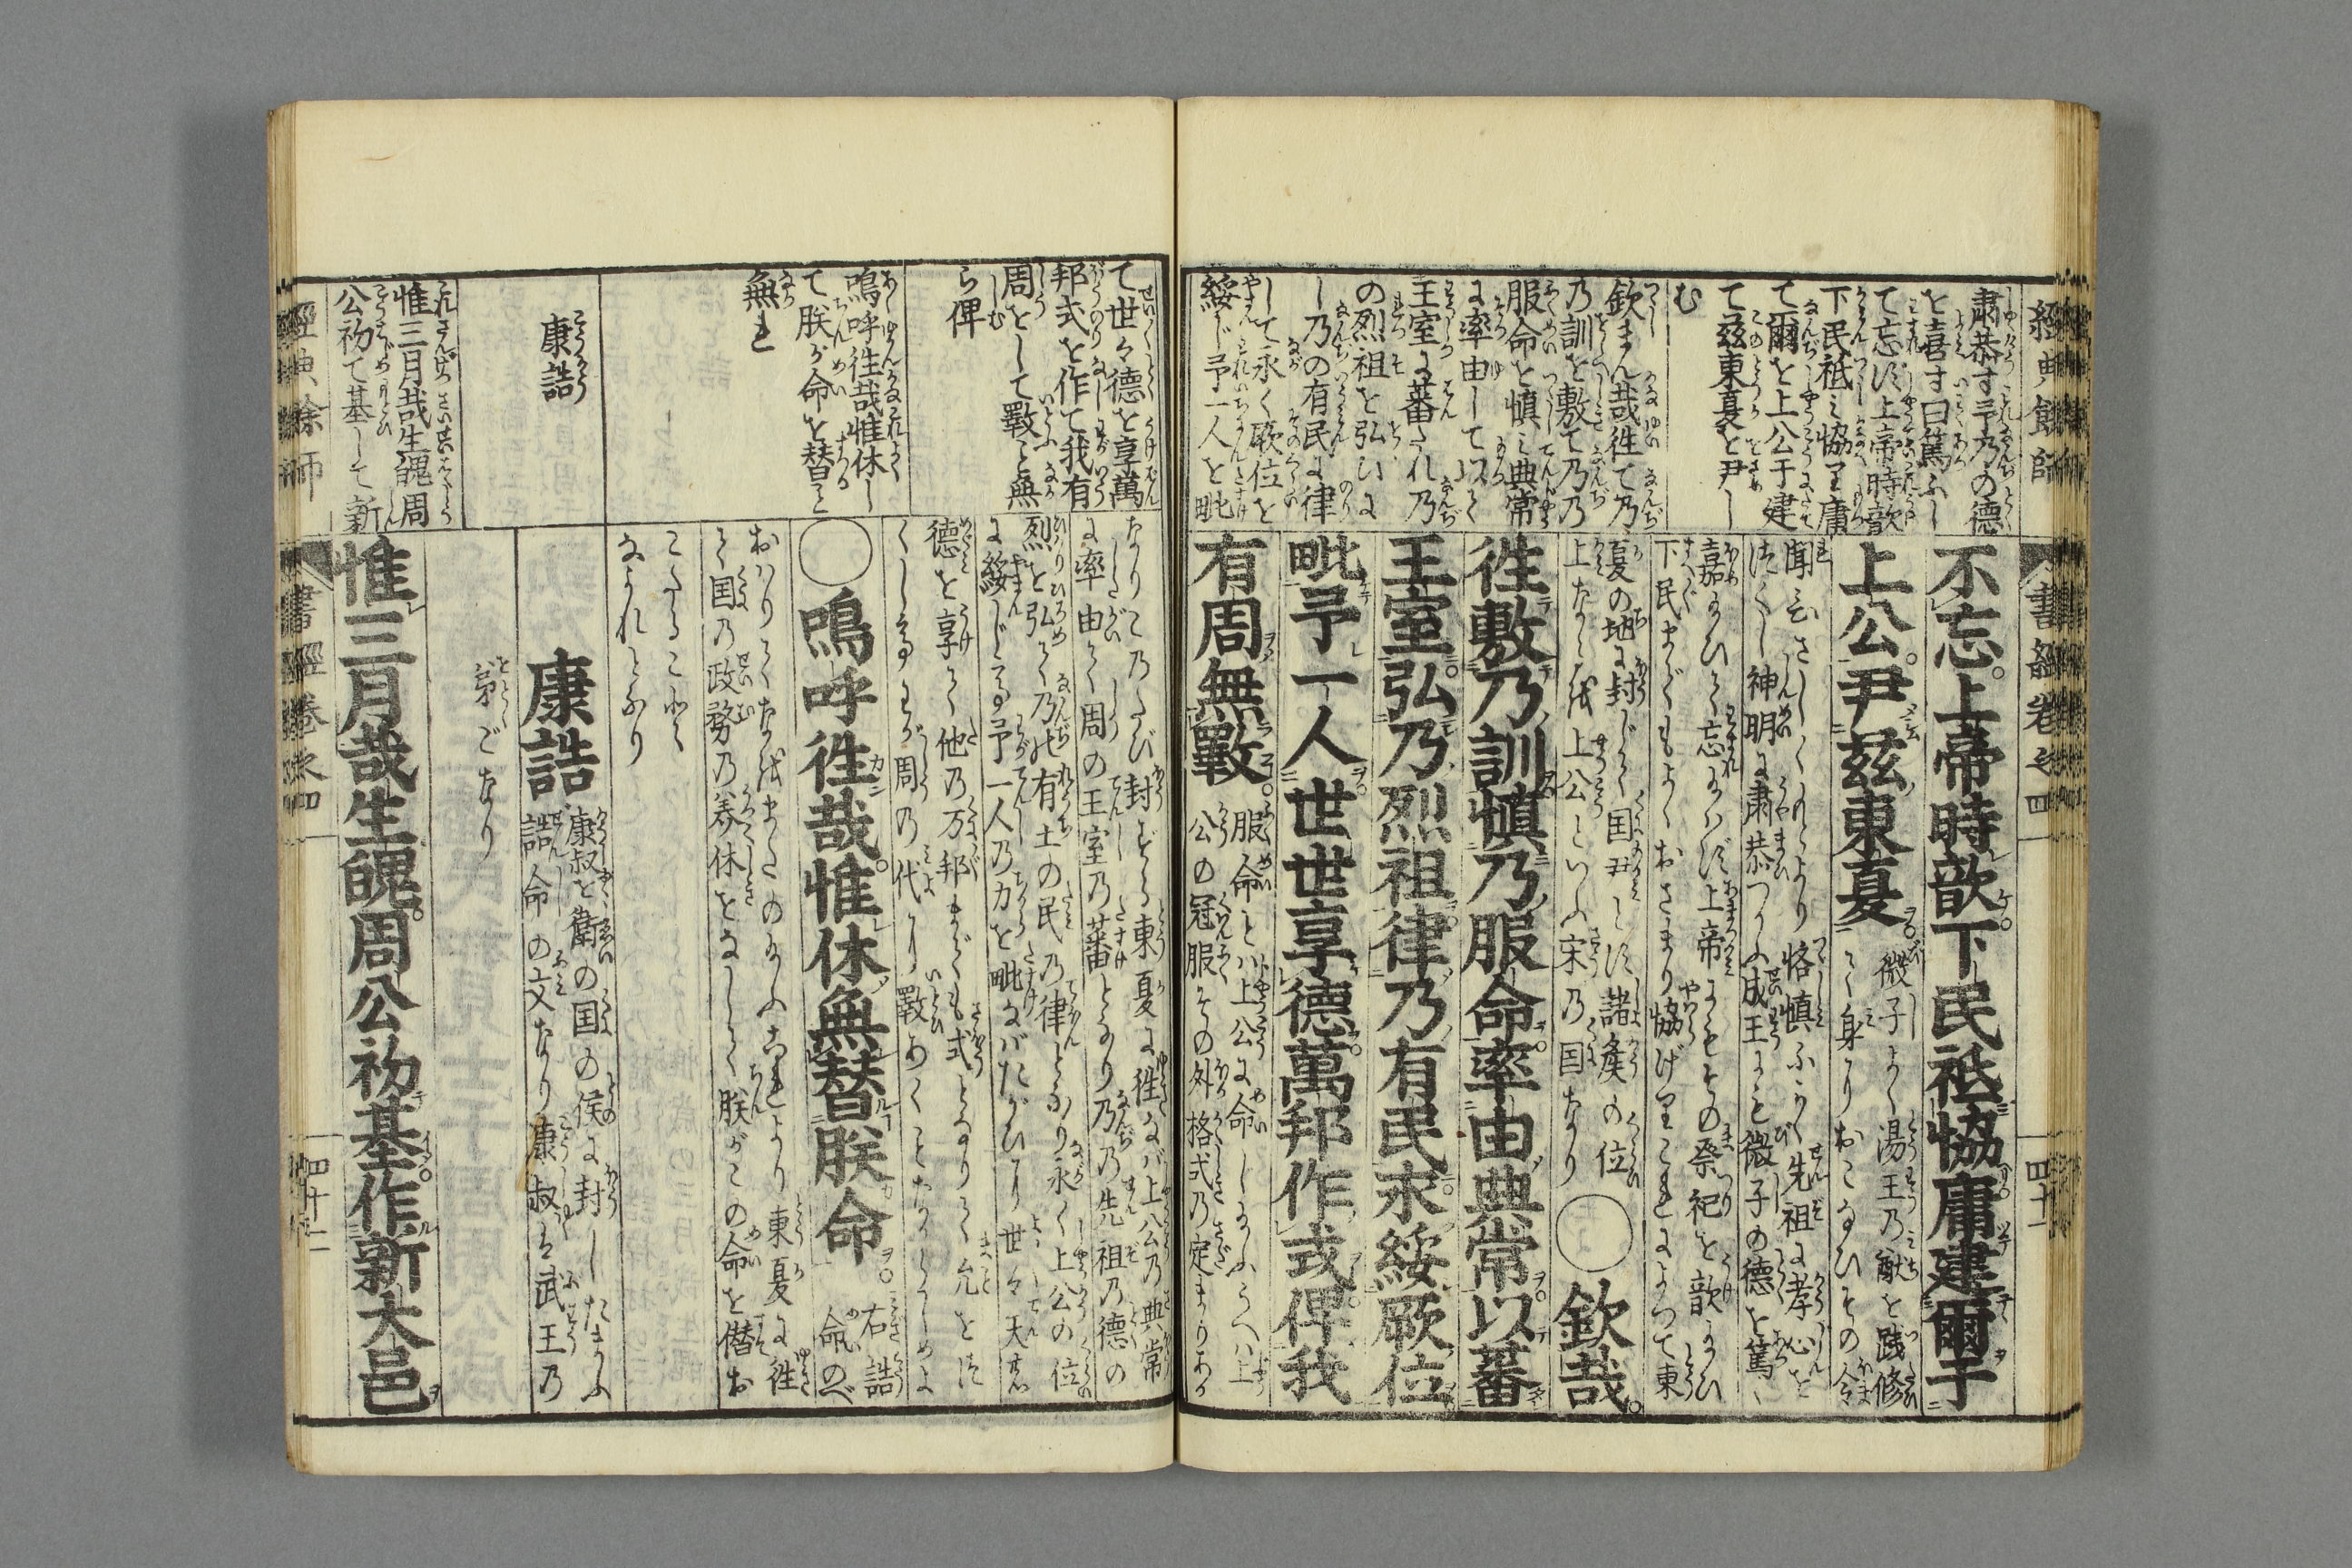 經典餘師
書經卷之四
四十一
肅恭す予乃の德
を喜す曰篤ふし
て忘れず上帝時歆
下民祗み協ひ庸
て爾を上公于建
て茲東夏を尹し
む
欽まん哉徃て乃
乃訓を敷て乃乃
服命を慎み典常
に率由して以て
王室に蕃たれ乃
の烈祖を弘ひに
し乃の有民に律
して永く厥位を
綏じ予一人を毗
不忘上帝時歆下民祗協庸建爾于
上公尹茲東夏
微子よく湯王乃猷を践修
て身におこなひその令
聞ひさしくしれより恪慎ふかく先祖に孝心を
つくし神明に肅恭つかふ成王にも微子の德を篤く
嘉よひて忘れず上帝にもその祭祀を歆よひ
下民までもよくおさまり協げりこれによつて東
夏の地に封じて国尹とす諸矦の位
上なるは上公といふ宋乃国なり
○欽哉
徃敷乃訓慎乃服命率由典常以蕃
王室弘乃烈祖律乃有民永綏厥位
毗予一人世世享德萬邦作式俾我
有周無斁
服命とハ上公に命じたまふうへハ上
公の冠服その外格式乃定まりあり
て世々德を享萬
邦式を作て我有
周をして斁と無
ら俾
嗚呼徃哉惟休し
て朕が命を替こと
無れ
康誥
惟三月哉生魄周
公初て基して新
なりこ乃たび封ずる東夏に徃なバ上公乃典常
に率由て周の王室乃蕃となり乃乃先祖乃德の
烈を弘て乃の有土の民乃律となり永く上公の位
に綏じて予一人乃力を毗なバたがひに世々天の
德を享て他乃万邦までも式となりて允をつ
くしわが周の代に斁あくことなからしめよ
○嗚呼徃哉惟休無替朕命
右誥
命のべ
おハりてなほまたのたまふこれより東夏に徃
て国乃政務乃養休をなして朕がこの命を僭お
こたることなかれとなり
康誥
康叔を衛の国の侯に封したまふ
誥命の文なり康叔は武王乃
弟ごなり
惟三月哉生魄周公初基作新大邑
經典餘師
書經卷之四
四十二